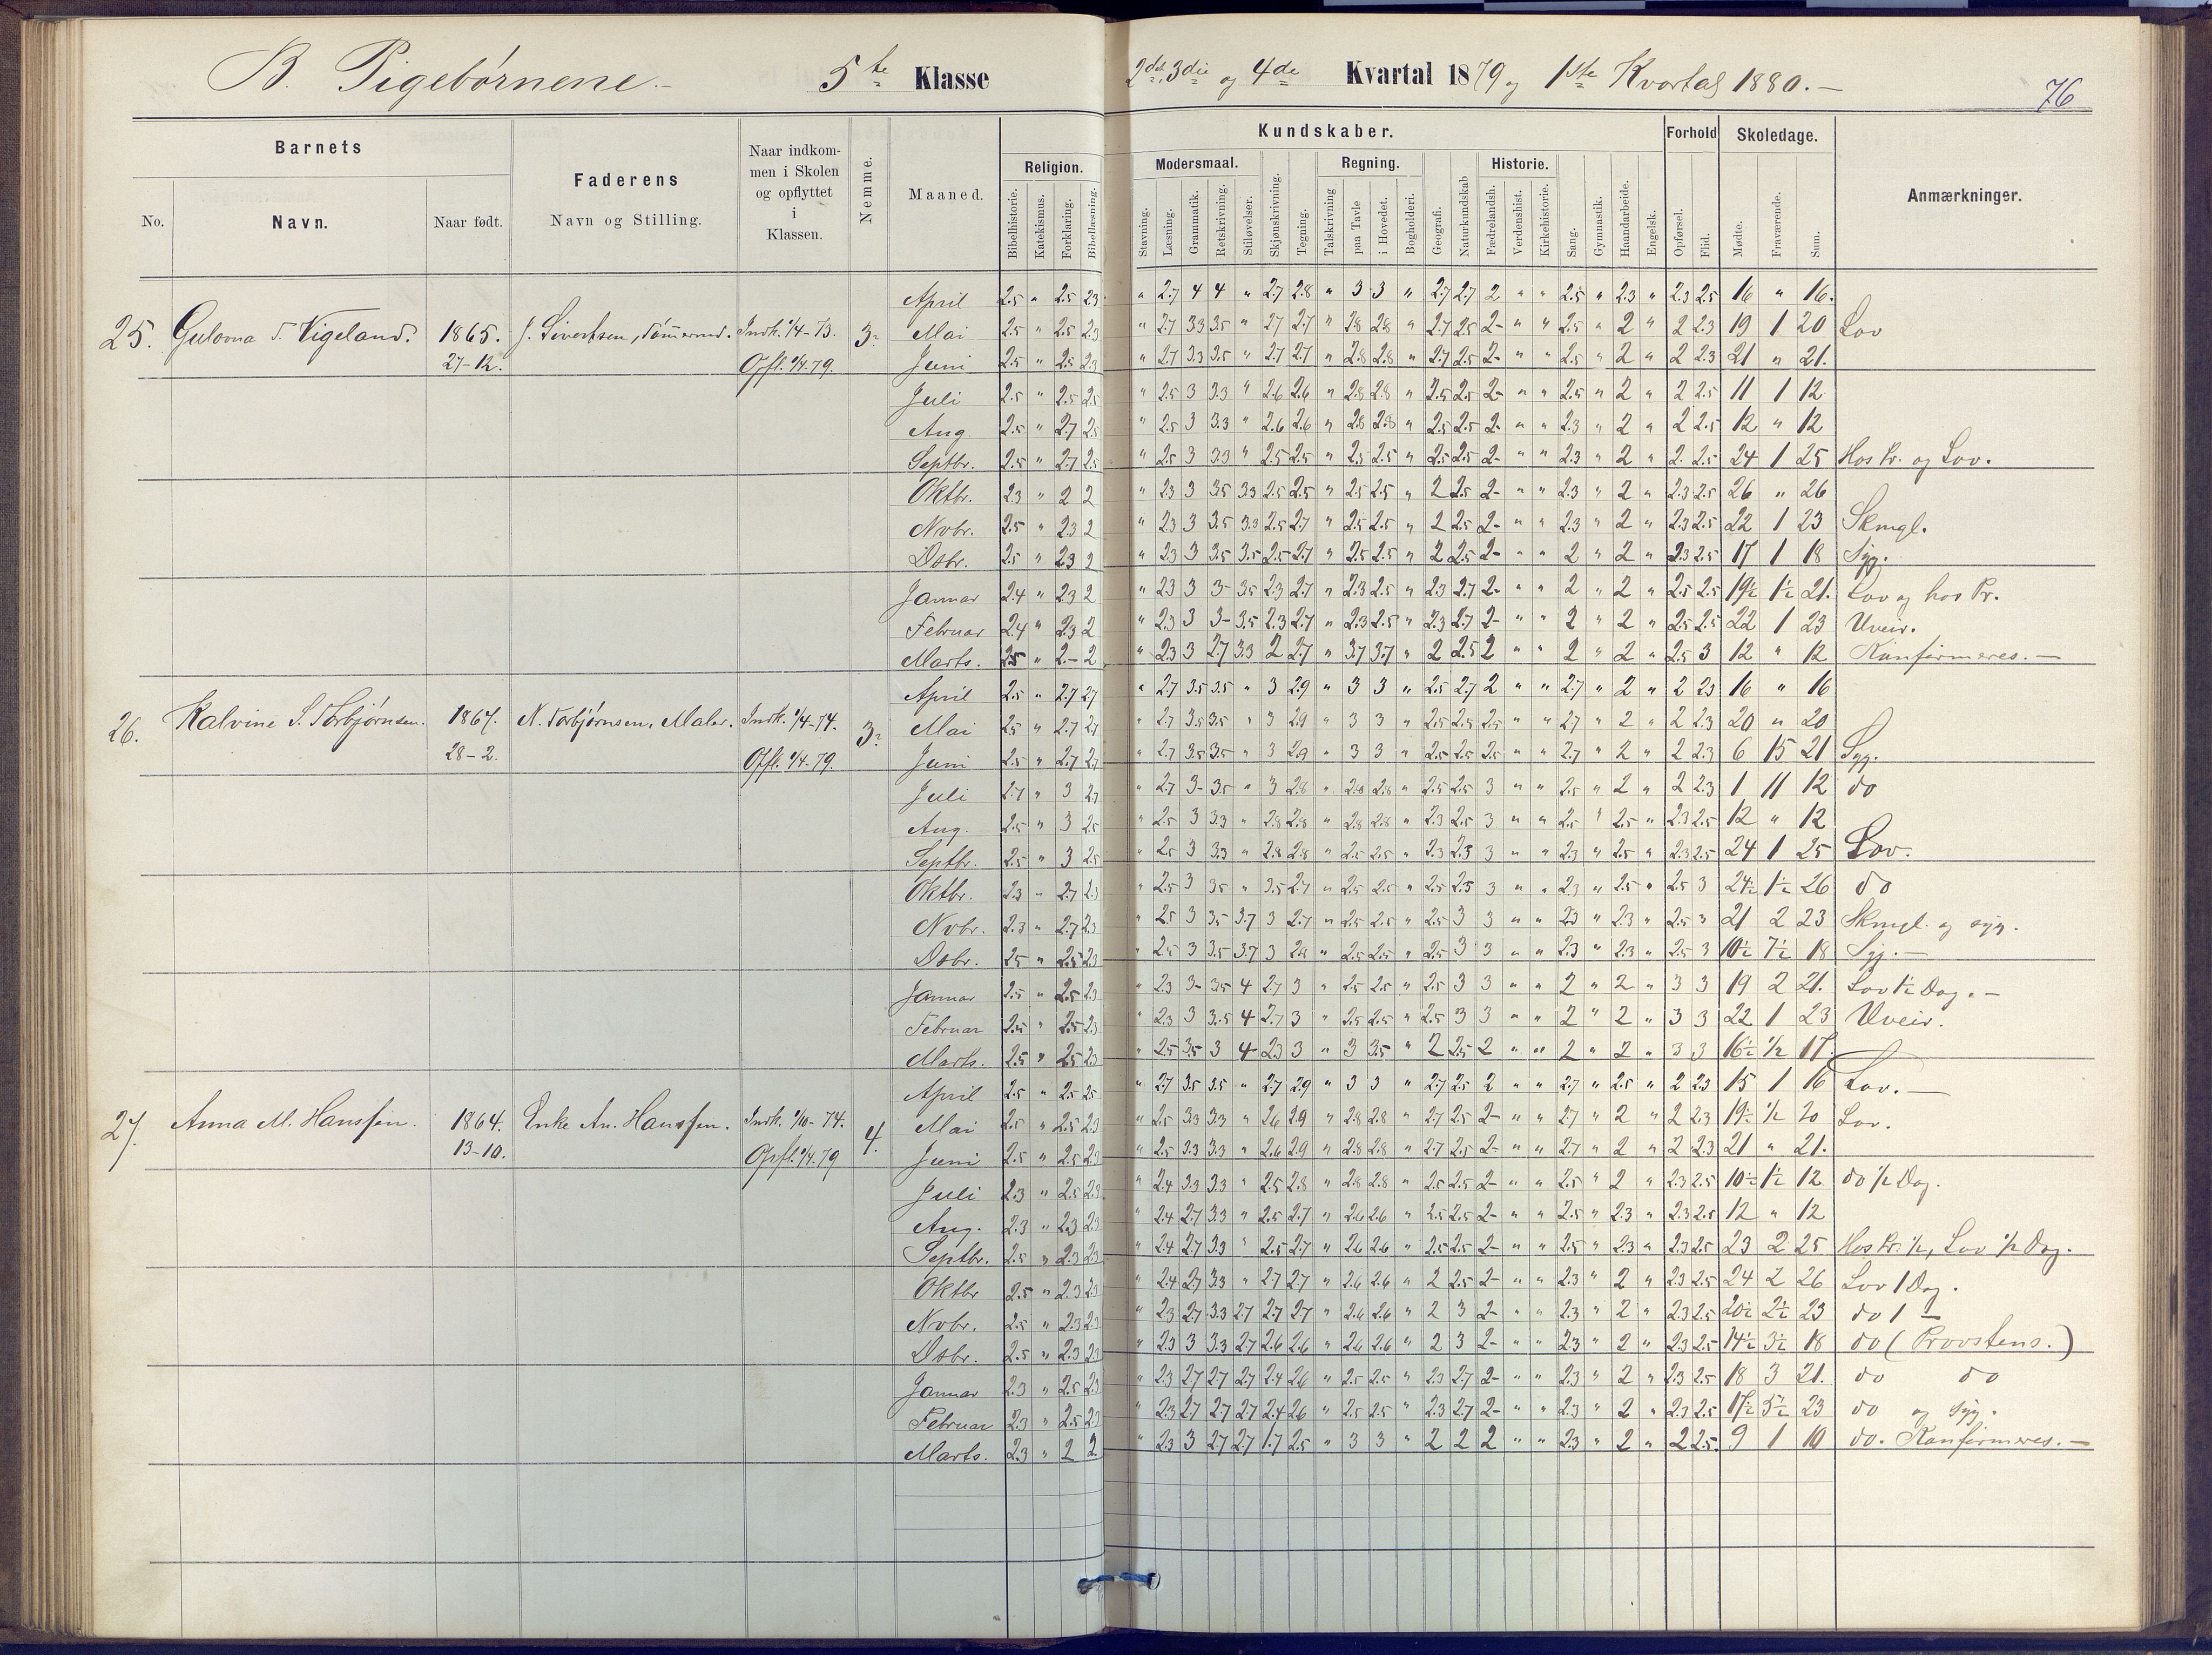 B. Pigebørnene.- 5te Klasse
2det, 3die og 4de Kvartal 1879 og 1ste Kvartal 1880.-
76
Barnets
No.
Navn.
Naar født.
Faderens
Navn og Stilling.
Naar indkom-
men i Skolen
og opflyttet
i
Klassen.
Nemme.
Maaned.
Kundskaber.
Religion.
Bibelhistorie.
Katekismus.
Forklaring.
Bibellæsning.
Modersmaal.
Stavning.
Læsning.
Grammatik.
Retskrivning.
Stiløvelser.
Skjønskrivning.
Tegning.
Regning.
Talskrivning
paa Tavle
i Hovedet.
Bogholderi.
Geografi.
Naturkundskab
Historie.
Fædrelandsh.
Verdenshist.
Kirkehistorie.
Sang.
Gymnastik.
Haandarbeide.
Engelsk.
Forhold
Opførsel.
Flid.
Skoledage.
Mødte.
Fraværende.
Sum.
Anmærkninger.
April 2.5 " 2.5 2.3 " 2.7 4 4 " 2.7 2.8 " 3 3 " 2.7 2.7 2 " " 2.5 " 2.3 " 2.3 2.5 16 " 16.
25. Vigeland. 1865. J. Sivertsen, Indk. 1/4-73. 3- Mai 2.5 " 2.5 2.3 " 2.7 3.3 3.5 " 2.7 2.7 " 2.8 2.8 " 2.7 2.5 2- " " 2.5 " 2 " 2 2.3 19 1 20 Lov
27-12. Opfl. 1/4.79. Juni 2.5 " 2.5 2.3 " 2.7 3.3 3.5 " 2.7 2.7 " 2.8 2.8 " 2.7 2.5 2- " " 2.5 " 2 " 2 2.3 21 " 21.
Juli 2.5 " 2.5 2.5 " 2.5 3 3.3 " 2.6 2.6 " 2.8 2.8 " 2.5 2.5 2- " " 2.5 " 2 " 2 2.5 11 1 12
Aug. 2.5 " 2.7 2.5 " 2.5 3 3.3 " 2.6 2.6 " 2.8 2.8 " 2.5 2.5 2- " " 2.3 " 2 " 2 2.5 12 " 12
Septbr. 2.5 " 2.7 2.5 " 2.5 3 3.3 " 2.5 2.5 " 2.5 2.5 " 2.5 2.5 2- " " 2.3 " 2 " 2. 2.5 24 1 25 Hos Pr. og Lov.
Oktbr. 2.3 " 2 2 " 2.3 3 3.5 3.3 2.5 2.5 " 2.5 2.5 " 2 2.5 2- " " 2.3 " 2 " 2.3 2.5 26 " 26
Novbr. 2.5 " 2.3 2 " 2.3 3 3.5 3.3 2.5 2.7 " 2.5 2.5 " 2 2.5 2- " " 2.3 " 2 " 2.3 2.5 22 1 23 Skmgl.
Dsbr. 2.5 " 2.3 2 " 2.3 3 3.5 3.5 2.5 2.7 " 2.5 2.5 " 2 2.5 2- " " 2 " 2 " 2.3 2.5 17 1 18 Syg.
Januar 2.4 " 2.3 2 " 2.3 3 3- 3.5 2.3 2.7 " 2.3 2.5 " 2.3 2.7 2- " " 2 " 2 " 2.5 2.5 19½ 1½ 21. Lov og hos Pr.
Februar 2.4 " 2.3 2 " 2.3 3 3- 3.5 2.3 2.7 " 2.3 2.5 " 2.3 2.7 2- " " 2 " 2 " 2.5 2.5 22 1 23 Uveir.
Marts. 2.5 " 2.- 2 " 2.3 3 2.7 3.3 2 2.7 " 3.7 3.7 " 2 2.5 2 " " 2 " 2 " 2.5 3 12 " 12 Konfirmeres.-
April 2.5 " 2.7 2.7 " 2.7 3.5 3.5 " 3 2.9 " 3 3 " 2.5 2.7 2 " " 2.7 " 2 " 2 2.3 16 " 16
26. Kalvine S. Torbjørnsen. 1867. N. Torbjørnsen, Maler. Indk. 1/4-74. 3- Mai 2.5 " 2.7 2.7 " 2.7 3.5 3.5 " 3 2.9 " 3 3 " 2.5 2.5 2.5 " " 2.7 " 2 " 2 2.3 20 " 20
28-2. Opfl. 1/4-79. Juni 2.5 " 2.7 2.7 " 2.7 3.5 3.5 " 3 2.9 " 3 3 " 2.5 2.5 2.5 " " 2.7 " 2 " 2 2.3 6 15 21 Syg.
Juli 2.7 " 3 2.7 " 2.7 3- 3.5 " 3 2.8 " 2.8 2.8 " 2.5 2.5 3 " " 2.5 " 2 " 2 2.3 1 11 12 do
Aug. 2.5 " 3 2.5 " 2.5 3 3.3 " 2.8 2.8 " 2.8 2.8 " 2.3 2.5 3 " " 2.5 " 2.5 " 2.3 2.5 12 " 12
Septbr. 2.5 " 3 2.5 " 2.5 3 3.3 " 2.8 2.8 " 2.5 2.5 " 2.3 2.3 3 " " 2.3 " 2.5 " 2.3 2.5 24 1 25 Lov.
Oktbr. 2.3 " 2.7 2.3 " 2.5 3 3.5 " 3.5 2.7 " 2.5 2.5 " 2.5 2.5 3 " " 2.3 " 2.5 " 2.5 3 24½ 1½ 26 do
Novbr. 2.3 " 2.7 2.3 " 2.5 3 3.5 3.7 3 2.7 " 2.5 2.5 " 2.5 3 3 " " 2.3 " 2.3 " 2.5 3 21 2 23 Skmgl. og syg.
Dsbr. 2.5 " 2.5 2.3 " 2.5 3 3.5 3.7 3 2.8 " 2.5 2.5 " 2.5 3 3 " " 2.3 " 2.3 " 2.5 3 10½ 7½ 18 Syg.-
Januar 2.5 " 2.5 2.3 " 2.3 3- 3.5 4 2.7 3 " 2.5 2.5 " 2.5 3 3 " " 2 " 2 " 3 3 19 2 21. Lov 1½ Dag.-
Februar 2.5 " 2.5 2.3 " 2.3 3 3.5 4 2.7 3 " 2.5 2.5 " 2.5 3 3 " " 2 " 2 " 3 3 22 1 23 Uveir.
Marts. 2.5 " 2.5 2.3 " 2.5 3.5 3 4 2.3 3 " 3 3.5 " 2 2.5 2 " " 2 " 2 " 3 3 16½ ½ 17.
April 2.5 " 2.5 2.5 " 2.7 3.5 3.5 " 2.7 2.9 " 3 3 " 2.7 2.5 2 " " 2.7 " 2.5 " 2 2.3 15 1 16 Lov.-
27. Anna M. Hanssen. 1864. Enke An. Hanssen. Indk. 1/10-74. 4. Mai 2.5 " 2.5 2.3 " 2.5 3.3 3.3 " 2.6 2.9 " 2.8 2.8 " 2.7 2.5 2- " " 2.7 " 2 " 2 2.3 19½ ½ 20 Lov.
13-10. Opfl. 1/4.79 Juni 2.5 " 2.5 2.3 " 2.5 3.3 3.3 " 2.6 2.9 " 2.8 2.8 " 2.7 2.5 2- " " 2.7 " 2 " 2 2.3 21 " 21.
Juli 2.3 " 2.5 2.3 " 2.4 3.3 3.3 " 2.5 2.8 " 2.8 2.8 " 2.5 2.5 2- " " 2.5 " 2 " 2.3 2.5 10½ 1½ 12 do ½ Dag.
Aug. 2.3 " 2.3 2.3 " 2.4 2.7 3.3 " 2.5 2.7 " 2.6 2.6 " 2.5 2.5 2- " " 2.5 " 2.3 " 2.3 2.5 12 " 12
Septbr. 2.5 " 2.3 2.3 " 2.4 2.7 3.3 " 2.5 2.7 " 2.6 2.6 " 2.5 2.5 2- " " 2.5 " 2.3 " 2.3 2.5 23 2 25 Hos Pr. ½, Lov ½ Dag.
Oktbr 2.5 " 2.3 2.3 " 2.4 2.7 3.3 " 2.7 2.7 " 2.6 2.6 " 2 2.5 2- " " 2.3 " 2 " 2.3 2.5 24 2 26 Lov 1 Dag.
Novbr. 2.5 " 2.3 2.3 " 2.3 2.7 3.3 2.7 2.7 2.7 " 2.6 2.6 " 2 3 2- " " 2.3 " 2 " 2.3 2.5 20½ 2½ 23 do 1 -
Dsbr. 2.5 " 2.3 2.3 " 2.3 3 3.3 2.7 2.6 2.6 " 2.6 2.6 " 2 3 2- " " 2.3 " 2 " 2.3 2.5 14½ 3½ 18 do (Provstens.)
Januar 2.3 " 2.5 2.3 " 2.3 2.7 2.7 2.7 2.4 2.6 " 2.5 2.5 " 2.3 2.7 2- " " 2.3 " 2 " 2.3 2.5 18 3 21. do do
Februar 2.3 " 2.5 2.3 " 2.3 2.7 2.7 2.7 2.4 2.6 " 2.5 2.5 " 2.3 2.7 2- " " 2.3 " 2 " 2.3 2.5 17½ 5½ 23 do og syg.
Marts. 2.3 " 2 2. " 2.3 3 2.7 2.7 1.7 2.5 " 3 3 " 2 2 2 " " 2.3 " 2 " 2 2.5. 9 1 10 do. Konfirmeres.-